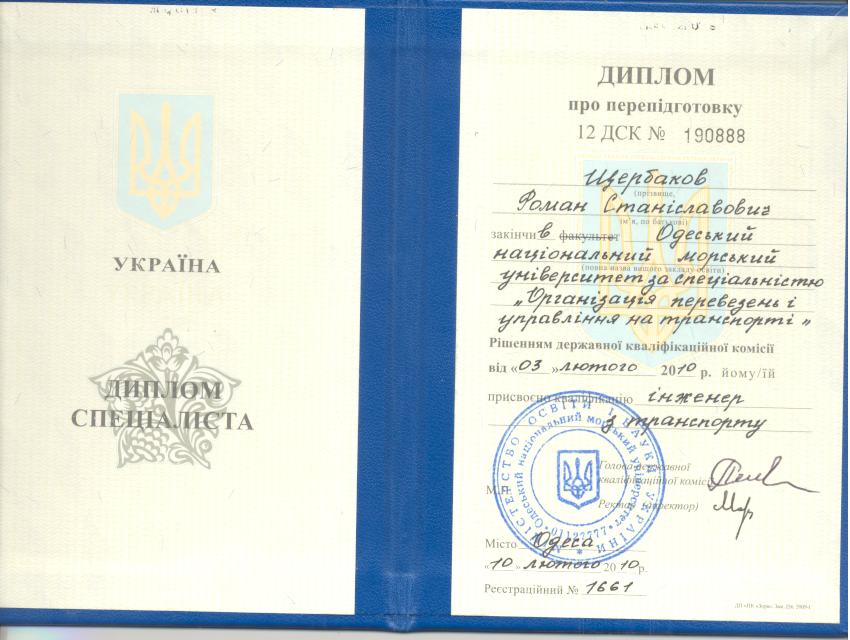 УКРАЇНА
ДИПЛОМ
СПЕЦІАЛІСТА
ДИПЛОМ
про перепідготовку
12 ДСК № 190888
Щербаков
(прізвище,
Роман Станіславович
(м'я, по батькові)
закінчив факультет Одеський
національний морський
(повна назва вищого закладу освіти)
університет за спеціальністю
„Організація перевезень і
управління на транспорті"
Рішенням державної кваліфікаційної комісії
від «03» лютого 2010 р. йому/їй
присвоєно кваліфікацію інженер
з транспорту
Голова державної
кваліфікаційної комісії
М.П.
Ректор (директор)
МІНІСТЕРСТВО ОСВІТИ І НАУКИ УКРАЇНИ
Одеський національний морський університет
* 01127777 *
Місто Одеса
«10» лютого 2010р.
Реєстраційний № 1661